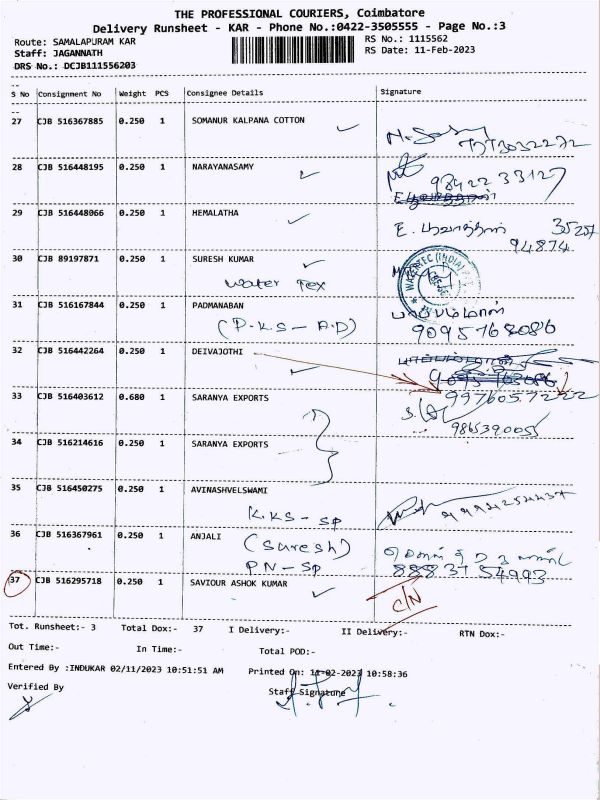 THE PROFESSIONAL COURIERS, Coimbatore
Delivery Runsheet - KAR - Phone No.:0422-3505555 - Page No.:3
Route: SAMALAPURAM KAR
RS No.: 1115562
Staff: JAGANNATH
RS Date: 11-Feb-2023
DRS No.: DCJB111556203
S No Consignment No Weight PCS Consignee Details Signature
27 CJB 516367885 0.250 1 SOMANUR KALPANA COTTON
28 CJB 516448195 0.250 1 NARAYANASAMY
98422 33127
29 CJB 516448066 0.250 1 HEMALATHA
94874
30 CJB 89197871 0.250 1 SURESH KUMAR
Water Tex
WATERTEC (INDIA)
31 CJB 516167844 0.250 1 PADMANABAN
(P.K.S - A.D)
9095763086
32 CJB 516442264 0.250 1 DEIVAJOTHI
33 CJB 516403612 0.680 1 SARANYA EXPORTS
9976057222
9865390055
34 CJB 516214616 0.250 1 SARANYA EXPORTS
35 CJB 516450275 0.250 1 AVINASHVELSWAMI
K.KS - SP
36 CJB 516367961 0.250 1 ANJALI
(Suresh)
PN - SP
88837 54993
37 CJB 516295718 0.250 1 SAVIOUR ASHOK KUMAR
C/N
Tot. Runsheet:- 3 Total Dox:- 37 I Delivery:- II Delivery:- RTN Dox:-
Out Time:- In Time:- Total POD:-
Entered By :INDUKAR 02/11/2023 10:51:51 AM Printed On: 11-02-2023 10:58:36
Verified By
Staff Signature